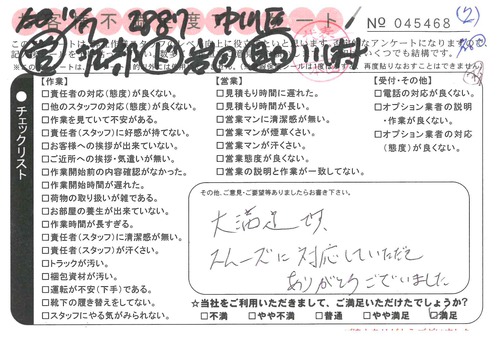 2887 中川区
№ 045468 ②
チェックリスト
【作業】
□責任者の対応(態度)が良くない。
□他のスタッフの対応(態度)が良くない。
□作業を見ていて不安がある。
□責任者(スタッフ)に好感が持てない。
□お客様への挨拶が出来ていない。
□ご近所への挨拶・気遣いが無い。
□作業開始前の内容確認がなかった。
□作業開始時間が遅れた。
□荷物の取り扱いが雑である。
□お部屋の養生が出来ていない。
□作業時間が長すぎる。
□責任者(スタッフ)に清潔感が無い。
□責任者(スタッフ)が汗くさい。
□トラックが汚い。
□梱包資材が汚い。
□運転が不安(下手)である。
□靴下の履き替えをしてない。
□スタッフにやる気がみられない。
【営業】
□見積もり時間に遅れた。
□見積もり時間が長い。
□営業マンに清潔感が無い。
□営業マンが煙草くさい。
□営業マンが汗くさい。
□営業態度が良くない。
□営業の説明と作業が一致してない。
【受付・その他】
□電話の対応が良くない。
□オプション業者の説明
・作業が良くない。
□オプション業者の対応
(態度)が良くない。
その他、ご意見・ご要望等ありましたらお書き下さい。
大満足です。
スムーズに対応していただき
ありがとうございました
☆当社をご利用いただきまして、ご満足いただけたでしょうか?
□不満 □やや不満 □普通 □やや満足 □満足